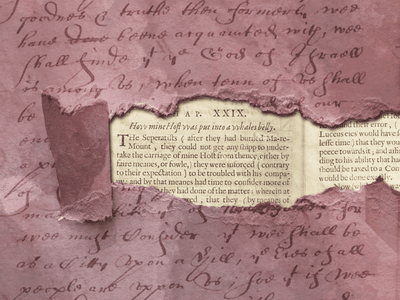 goodnes & truthe then formerly, wee
haue beene acquainted with, wee
shall finde yt ye God of Israell
is among vs, when tenn of vs shall
be our
AP. XXIX.
How mine Host was put into a whales belly.
THe Seperatists (after they had burned Ma-re-
Mount, they could not get any shipp to under-
take the carriage of mine Host from thence, either by
faire meanes, or fowle,) they were inforced (contrary
to their expectation) to be troubled with his compa-
ny: and by that meanes had time to consider more of
had done the matter: wherein at
d, that they (by meanes of
their error, (
Luceus eies would have s
lesse time) that they would
poence towards it; and aff
ding to his ability that ha
should be taxed to a Com
would be done exactly.
Now
tree must Consider yt wee shall be
as a Citty vpon a Hill, ye Eies of all
people are vpon vs, soe yt if wee